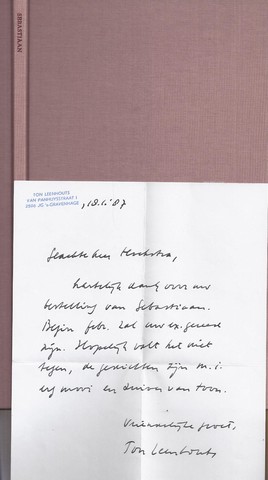 SEBASTIAAN
TON LEENHOUTS
VAN PANHUYSSTRAAT 1
2806 JG 's-GRAVENHAGE
, 18.1.'87
Geachte heer Kerkstra,
hartelijk dank voor uw
bestelling van Sebastiaan.
Begin febr. zal uw ex. gereed
zijn. Hopelijk valt het niet
tegen, de gedichten zijn m.i.
erg mooi en zuiver van toon.
Vriendelijke groet,
Ton Leenhouts